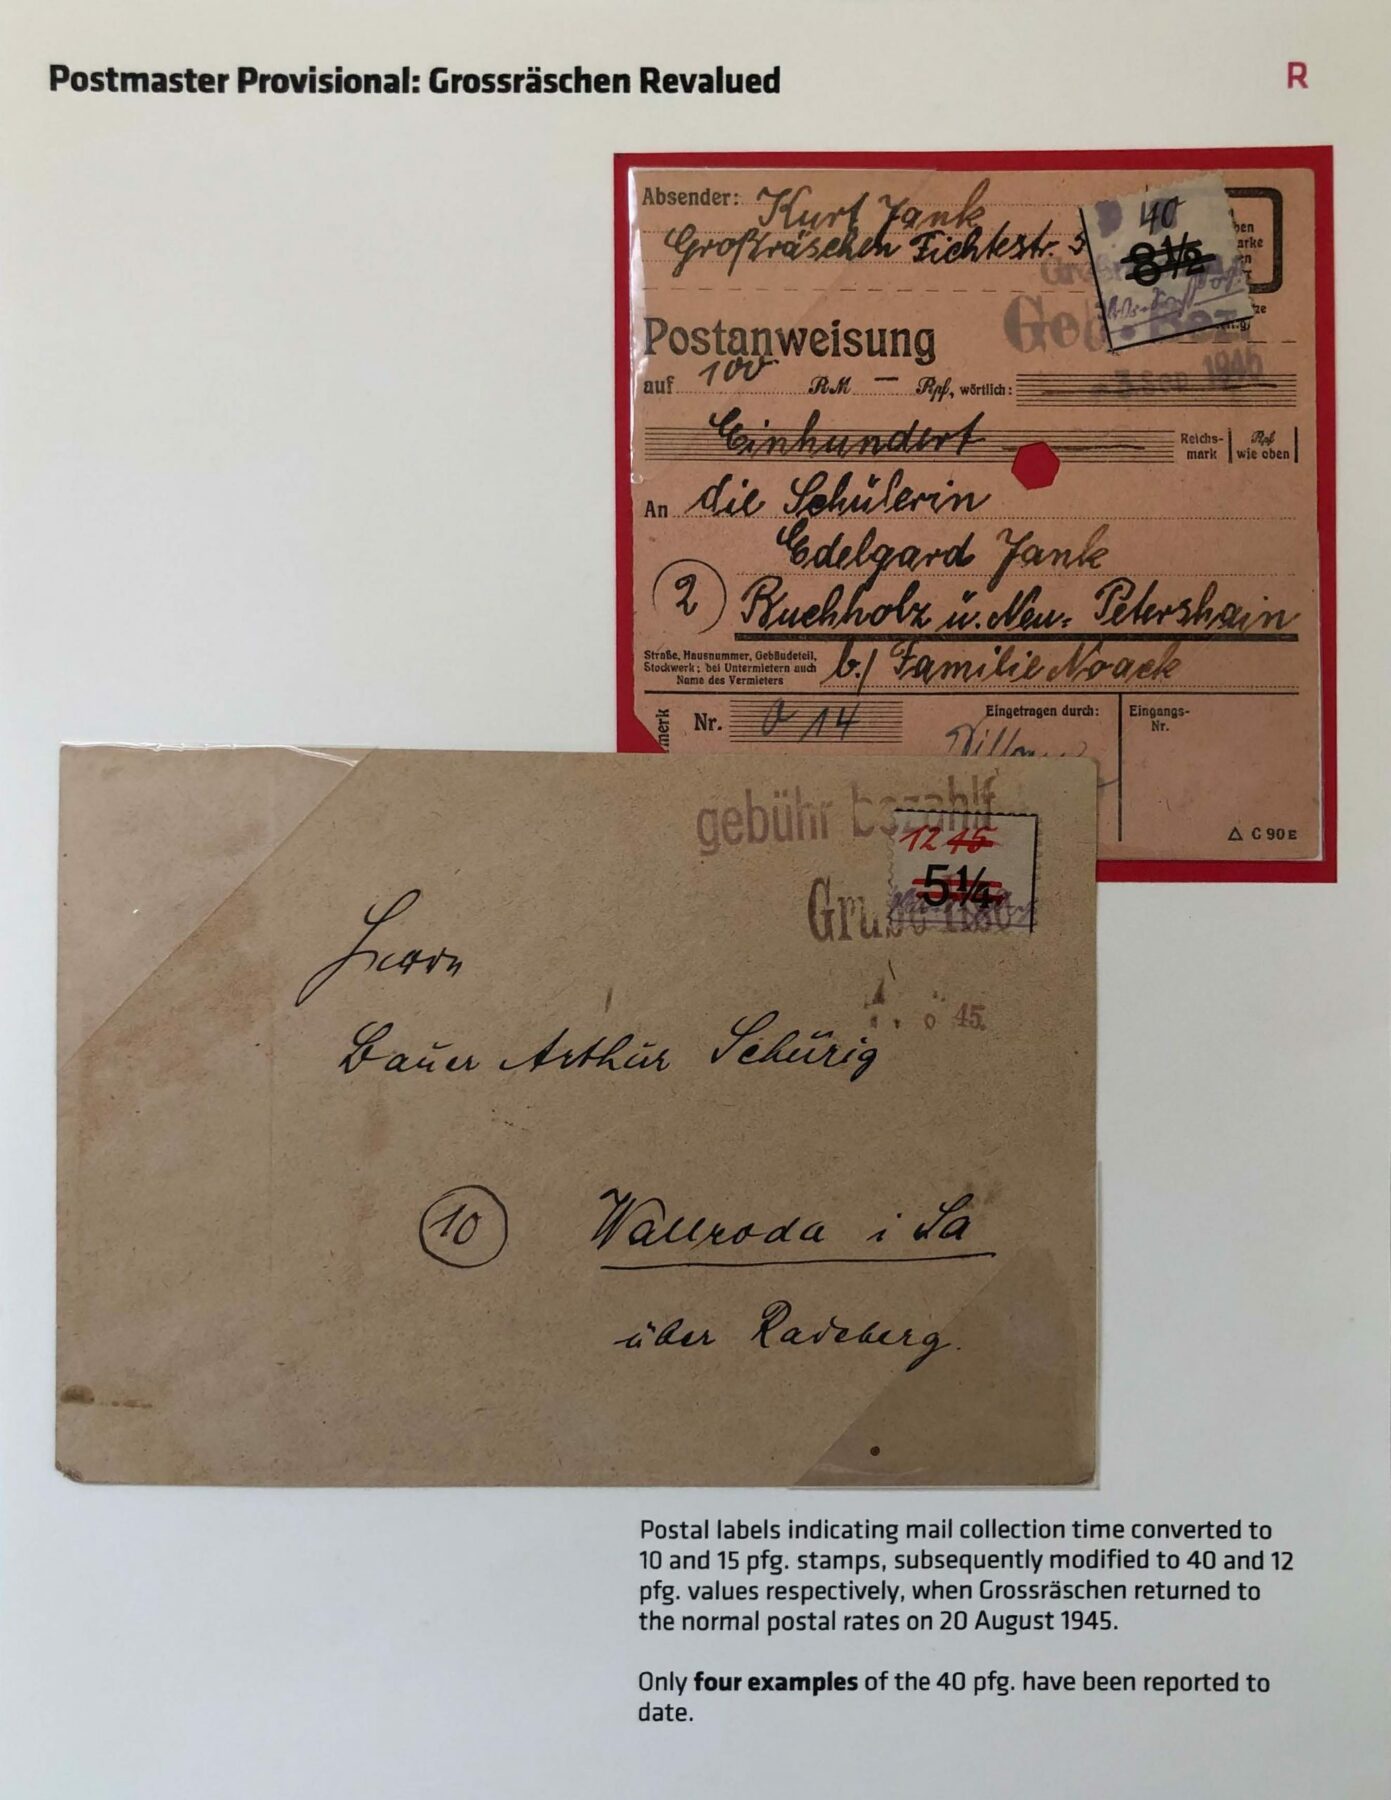 Postmaster Provisional: Grossräschen Revalued
R
Absender: Kurt Jank
Großräschen Fichtestr. 5
40
8½
Postanweisung
auf 100 RM — Rpf, wörtlich:
Sep. 1945
Einhundert
Reichs-
mark
Rpf
wie oben
An die Schülerin
Edelgard Jank
2
Buchholz ü. Neu-Petershain
Straße, Hausnummer, Gebäudeteil,
Stockwerk; bei Untermietern auch
Name des Vermieters
b./ Familie Noack
Nr. 0 14
Eingetragen durch:
Eingangs-
Nr.
△ C 90 E
gebühr bezahlt
12 15
5¼
Herrn
45.
Bauer Arthur Schürig
10
Wallroda i Sa
über Radeberg.
Postal labels indicating mail collection time converted to
10 and 15 pfg. stamps, subsequently modified to 40 and 12
pfg. values respectively, when Grossräschen returned to
the normal postal rates on 20 August 1945.
Only four examples of the 40 pfg. have been reported to
date.